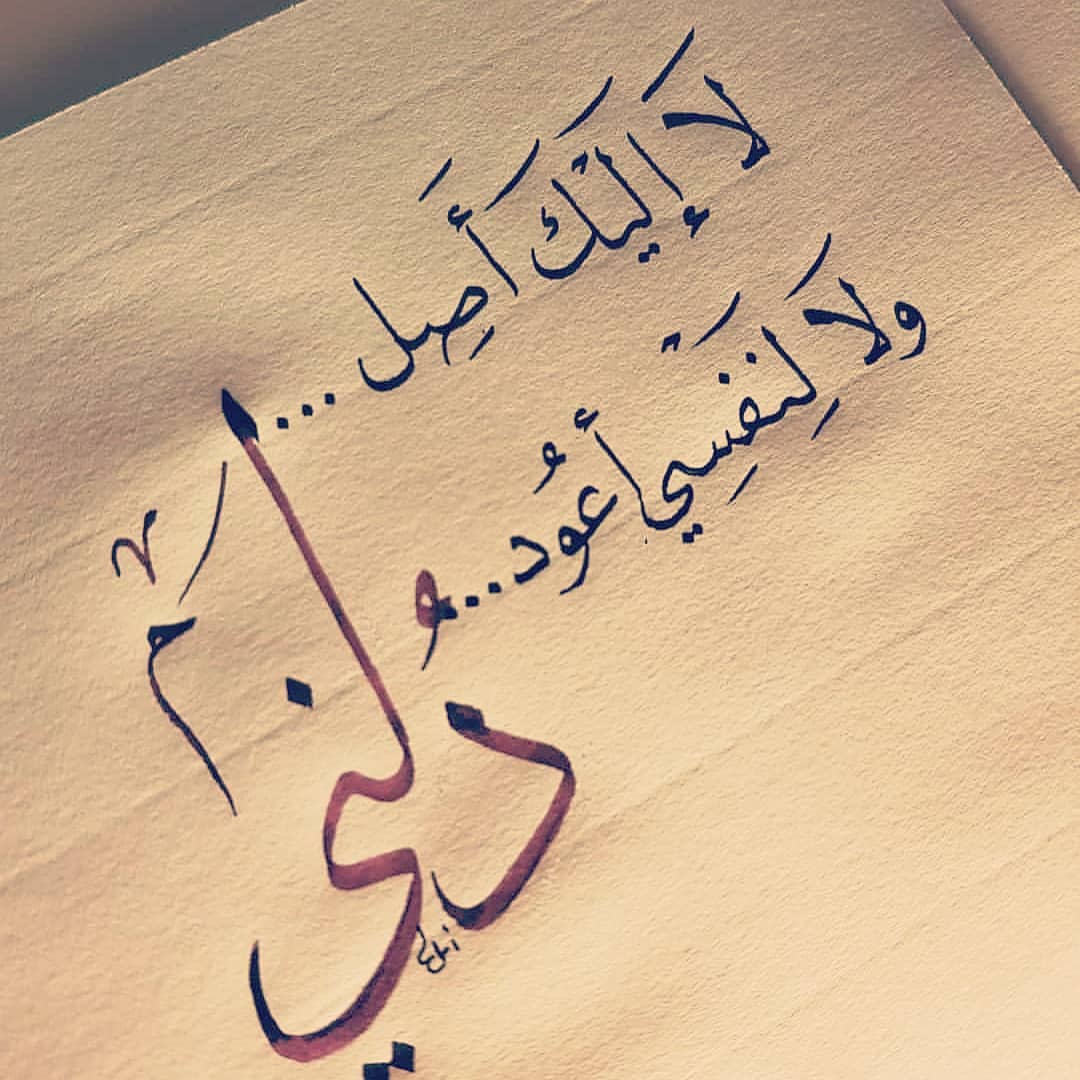 لَا إِليْكَ أَصِل ...
ولَا لِنَفْسِي أَعُود ...
دُلني